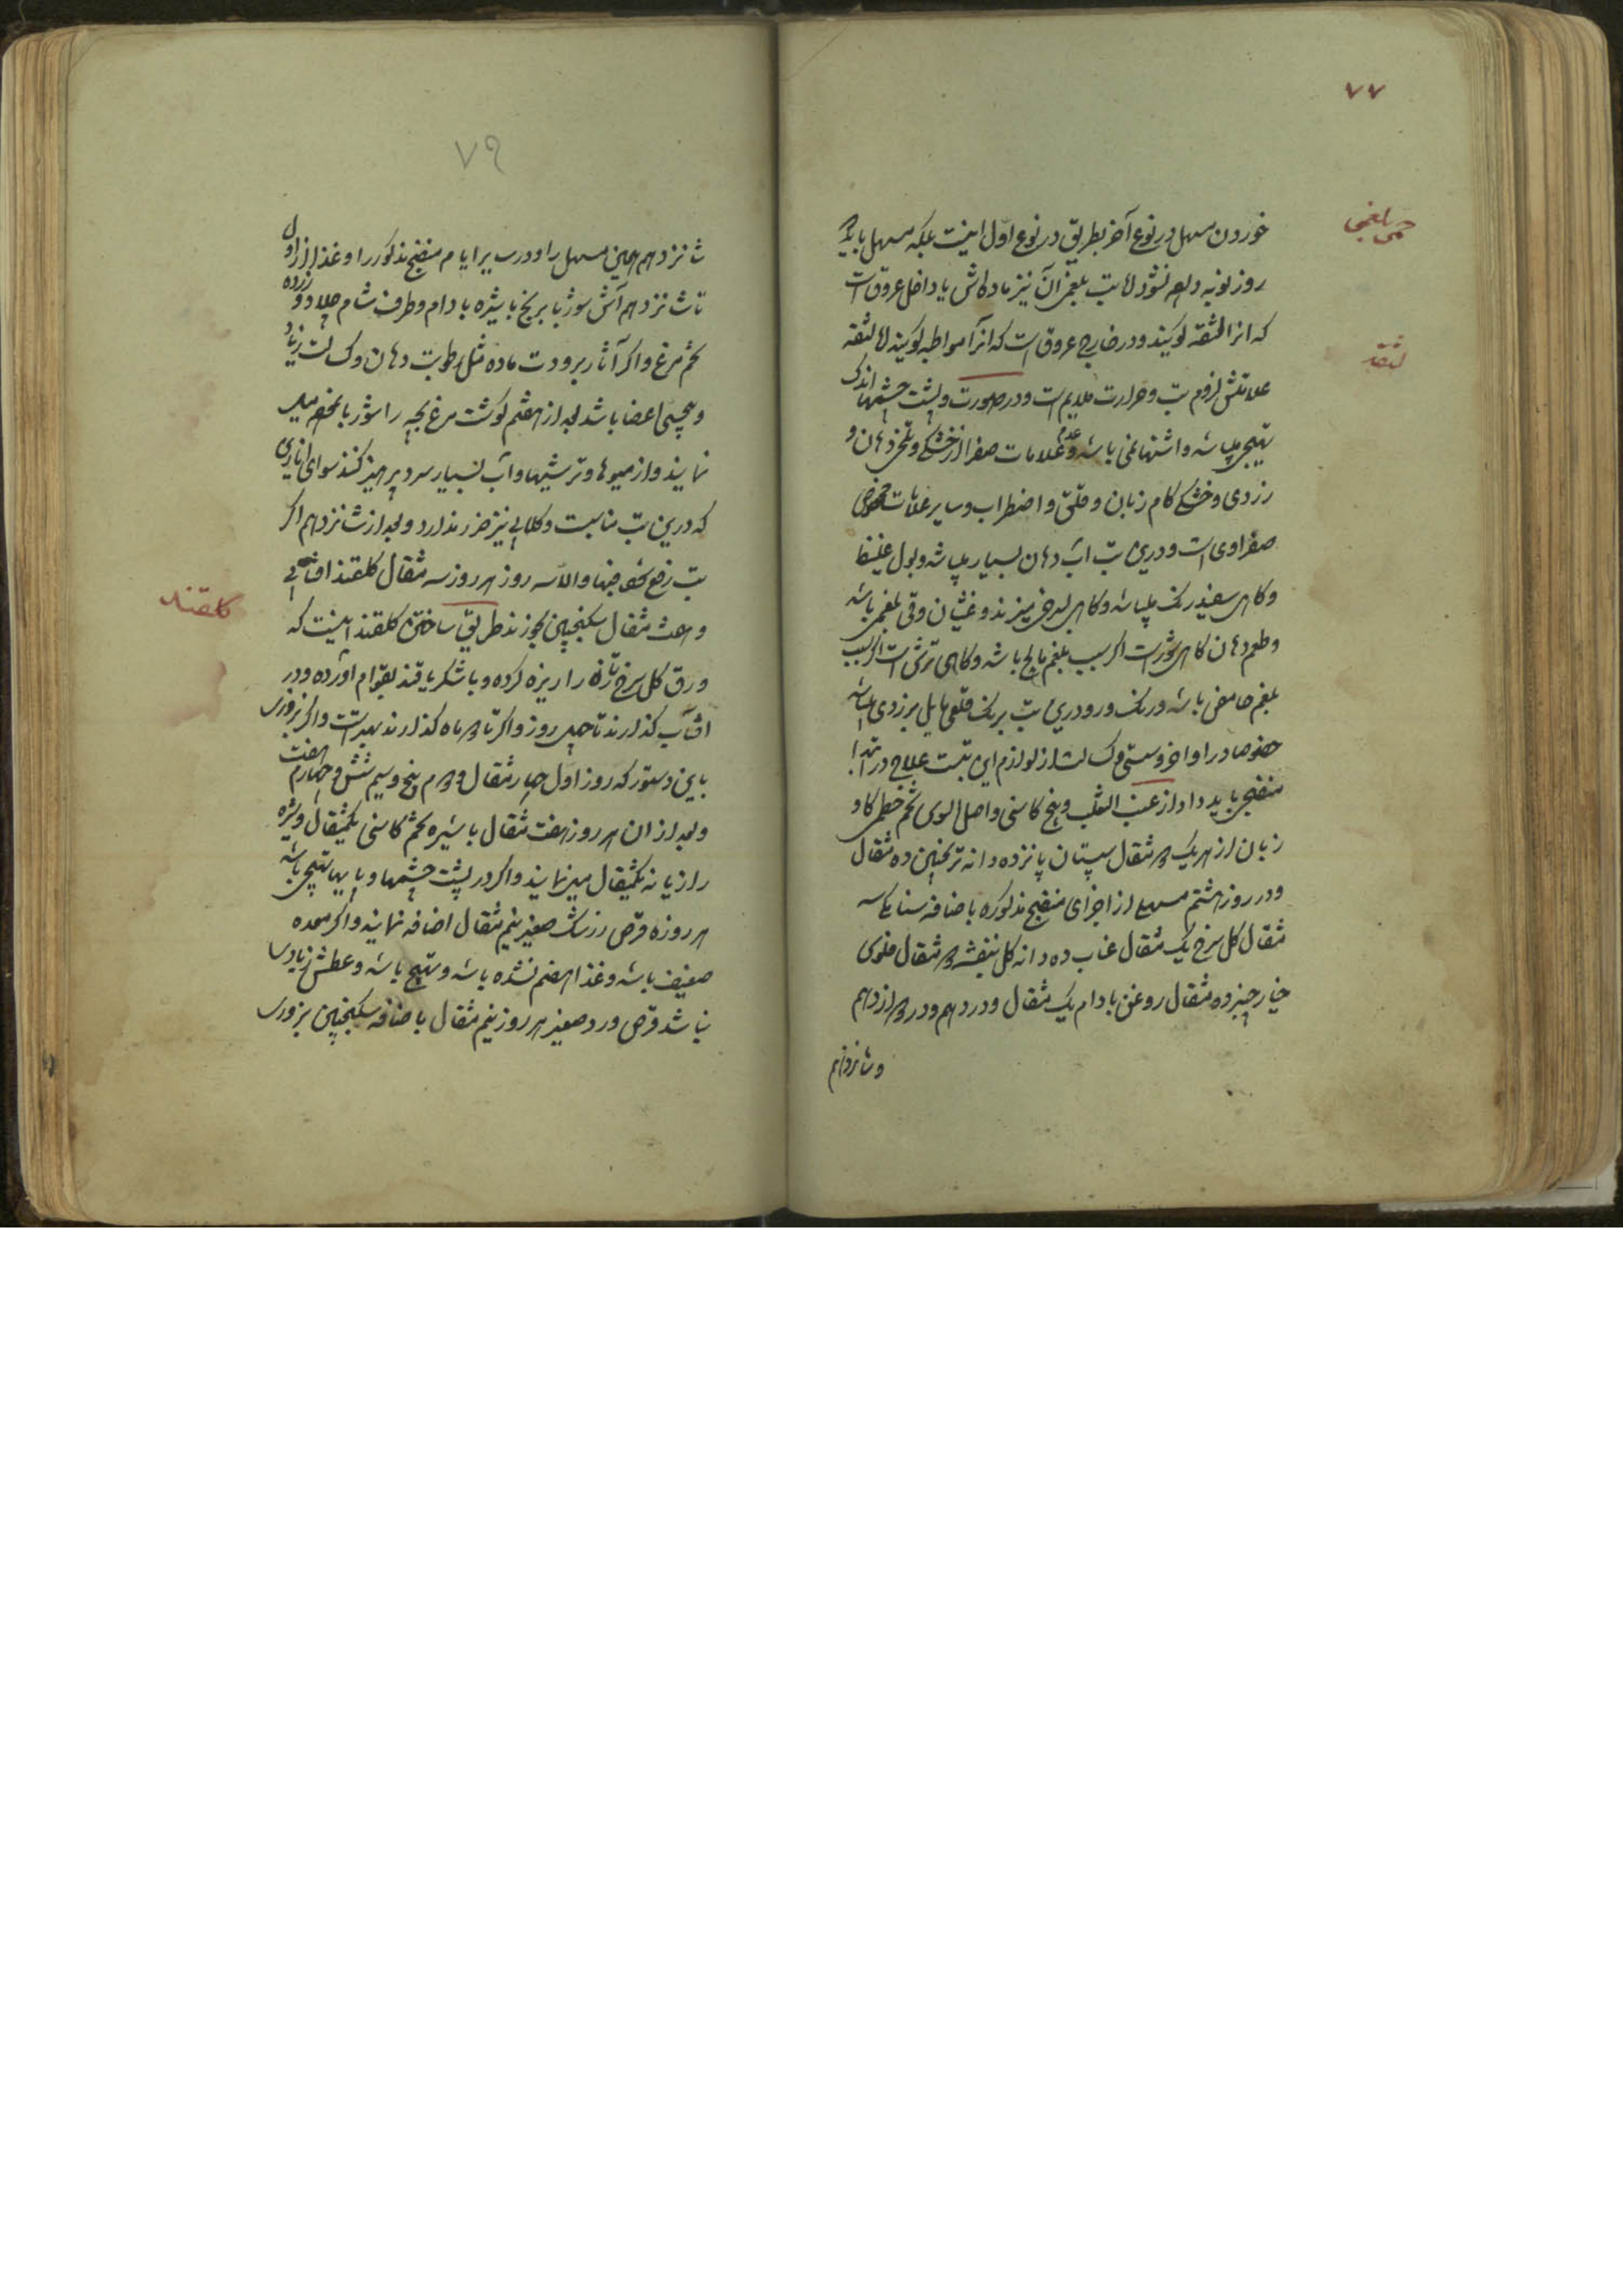 ۷۷
حمی بلغمی
خوردن مسهل در نوع آخر بطریق در نوع اول اینست بلکه مسهل باید که
روز نوبه واقع نشود اما تب بلغمی آن نیز ماده اش یا داخل عروق است
که انرا لثقه کویند و در خارج عروق است که انرا مواظبه کویند اما لثقه
لثقه
علامتش لزوم تب و حرارت ملایم است و در صورت و پشت چشمها اندکی
تهیج میباشد و اشتها نمی باشد و عدم علامات صفرا از خشکی و تلخی دهان و
زردی و خشکی کام زبان و قلق و اضطراب و سایر علامات مخصوص
صفراوی است و درین تب اب دهان بسیار میباشد و بول غلیظ
و کاهی سفید رنک میباشد و کاهی بسرخی میزند و غثیان و قی بلغمی باشد
و طعم دهان کاهی شور است اکر سبب بلغم مالح باشد و کاهی ترش است اکر سبب
بلغم حامض باشد و رنک رو درین تب برنک قلعی مایل بزردی میباشد
خصوصا در اواخر و سستی و کسالت از لوازم این تبست علاج در ابتدا
منضج باید داد از عنب الثعلب و بیخ کاسنی و اصل السوس تخم خطمی کاو
زبان از هریک دو مثقال سپستان پانزده دانه ترنجبین ده مثقال
و در روز هشتم مسهل از اجزای منضج مذکوره باضافه سنا مکی سه
مثقال کل سرخ یک مثقال عناب ده دانه کل بنفشه دو مثقال فلوس
خیار چنبر ده مثقال روغن بادام یک مثقال و در دهم و در دوازدهم
و شانزدهم
۷۹
شانزدهم همین مسهل را و در سایر ایام منضج مذکور را و غذا از اول
تا شانزدهم آش شوربا برنج با شیره بادام و طرف شام چلاو و زرده
تخم مرغ و اکر آثار برودت ماده مثل رطوبت دهان و کسالت زیاد
و بیحسی اعضا باشد بعد از هفتم کوشت مرغ بچه را شوربا نخود میل
نمایند و از میوها و ترشیها و اب بسیار سرد پرهیز کنند سوای انار
که درین تب مناسبت و کلابی نیز ضرر ندارد و بعد از شانزدهم اکر
تب رفع شد فبها و الا سه روز هر روز سه مثقال کلقند افتابی
و هشت مثقال سکنجبین بخورند طریق ساختن کلقند اینست که
کلقند
ورق کل سرخ تازه را ریزه کرده و با شکر یا قند بقوام اورده و در
افتاب کذارند تا چهل روز و اکر تا دو ماه کذارند بهتر است و اکر بزوری
باین دستور که روز اول چهار مثقال دویم پنج و سیم شش و چهارم هفت
و بعد از ان هر روز هفت مثقال با شیره تخم کاسنی یکمثقال و شیره
رازیانه یکمثقال میل نمایند و اکر در پشت چشمها و پایها تهیج باشد
هر روزه قرص زرشک صغیر نیم مثقال اضافه نمایند و اکر معده
ضعیف باشد و غذا هضم نشده باشد و تهیج باشد و عطش زیادی
نباشد قرص ورد صغیر هر روز نیم مثقال باضافه سکنجبین بزوری